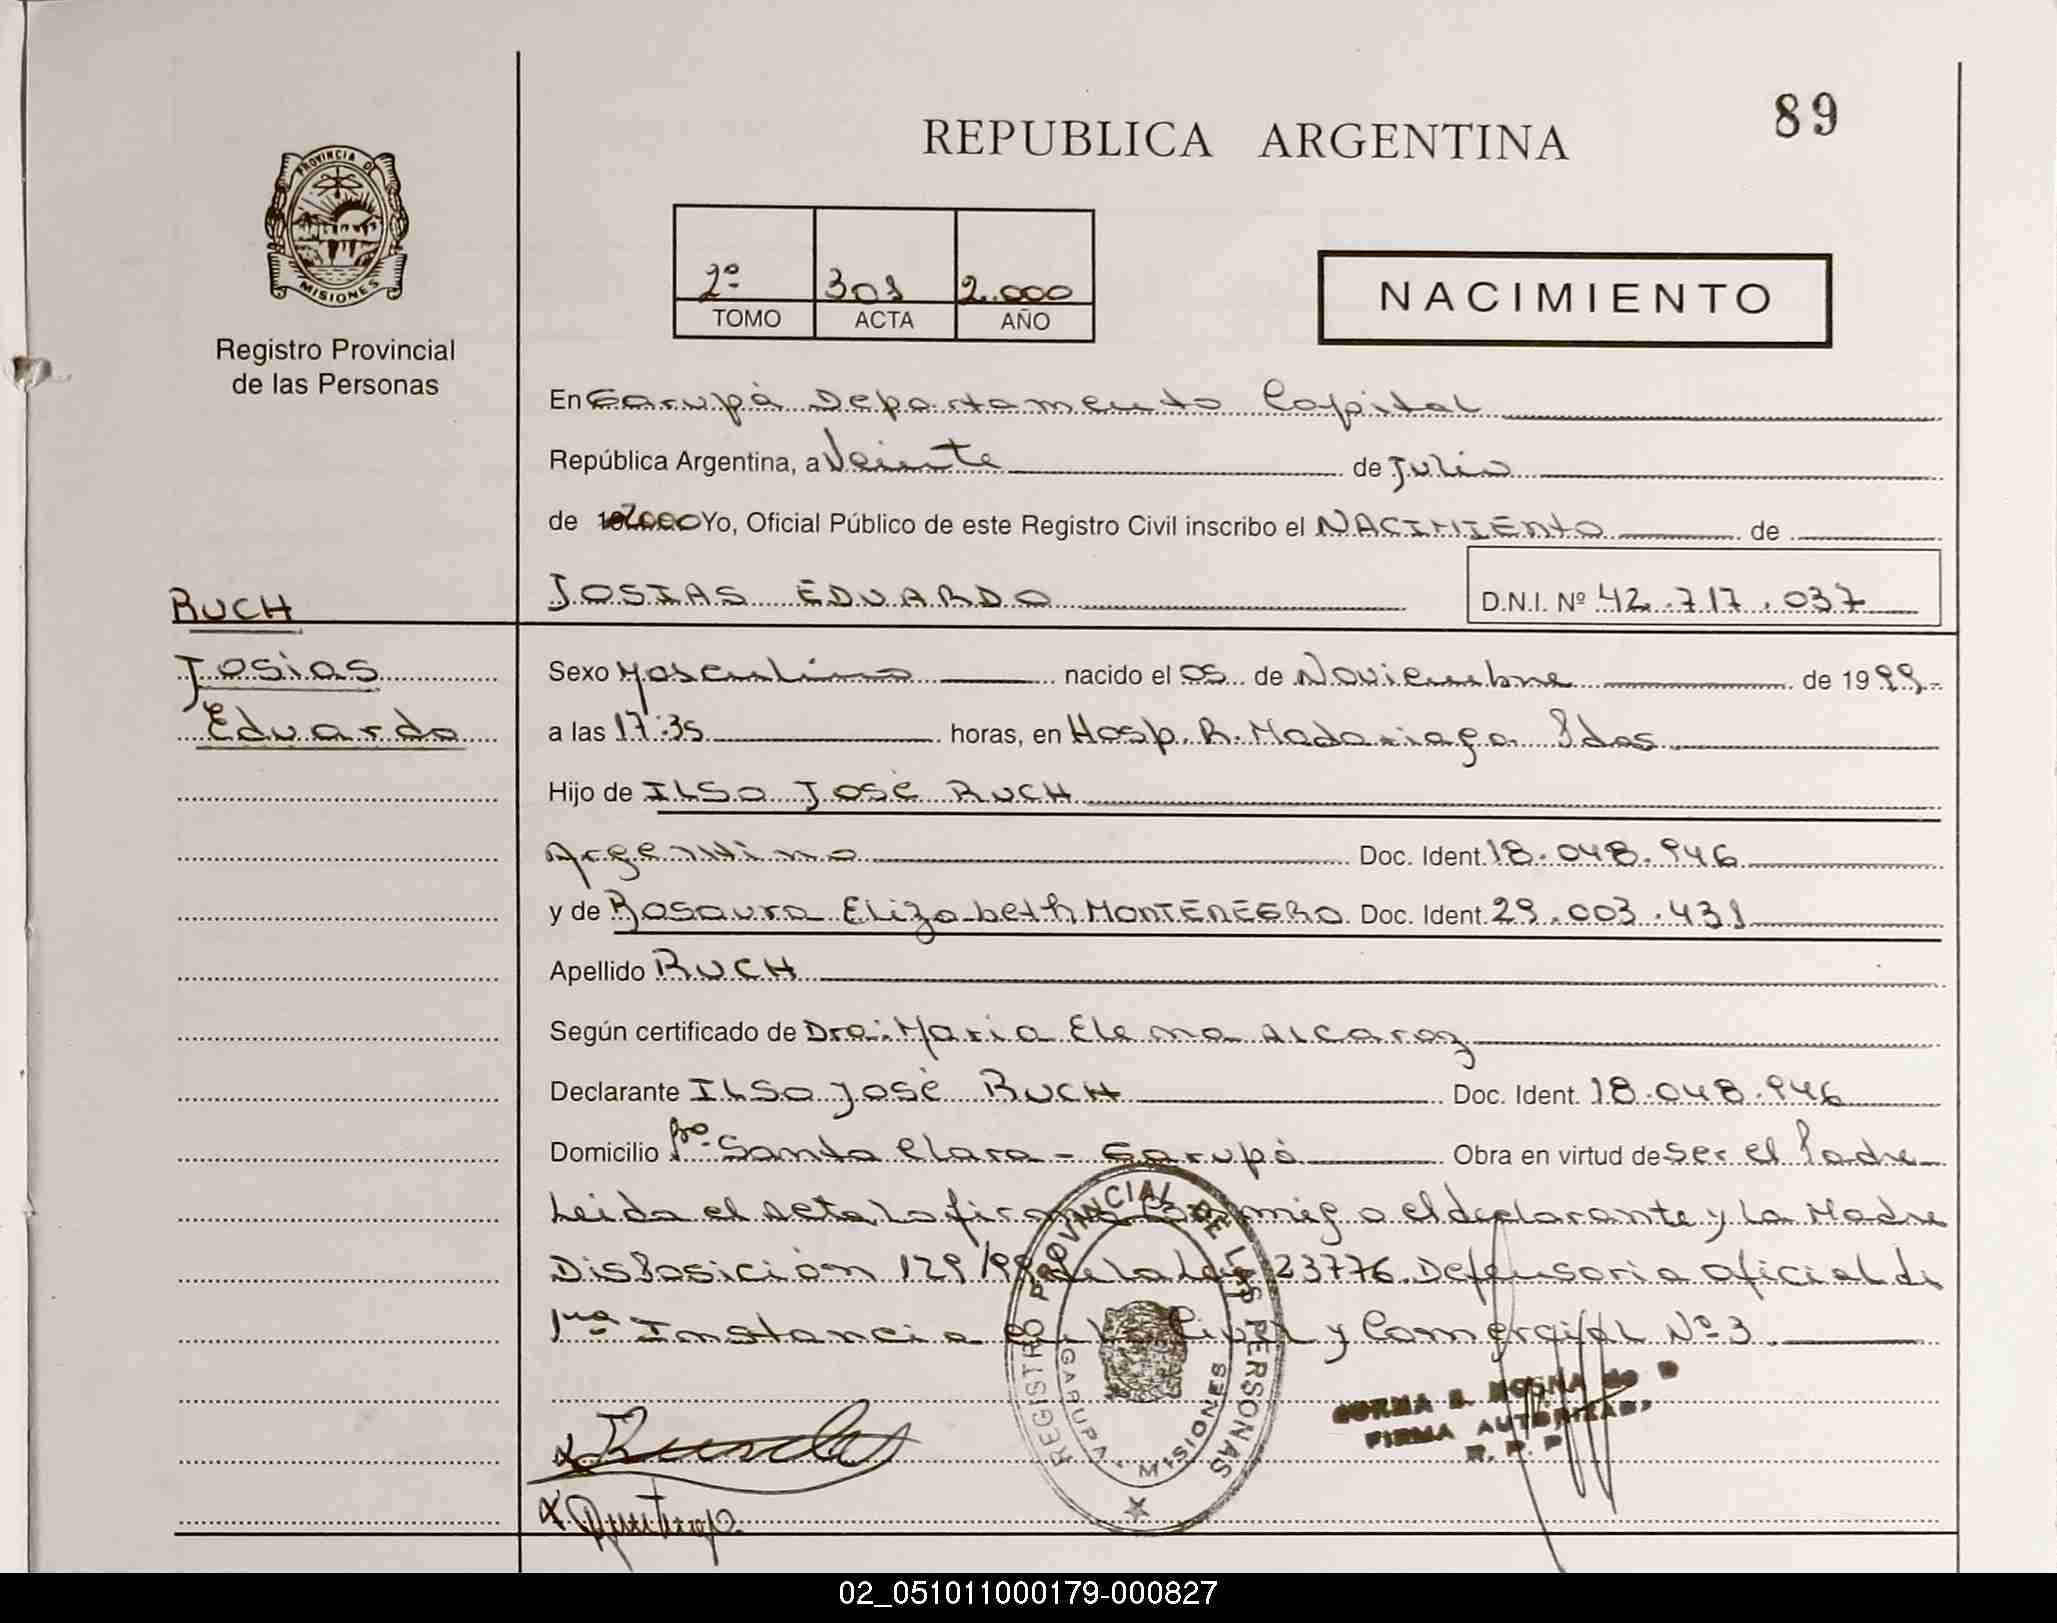 89
REPUBLICA ARGENTINA
PROVINCIA DE
MISIONES
Registro Provincial
de las Personas
2º 301 2.000
TOMO ACTA AÑO
NACIMIENTO
En Garupá Departamento Capital
República Argentina, a Veinte de Julio
de 2000 Yo, Oficial Público de este Registro Civil inscribo el NACIMIENTO de
JOSIAS EDUARDO D.N.I. Nº 42.717.037
RUCH
Josias
Eduardo
Sexo Masculino nacido el 05 de Noviembre de 1999-
a las 17:35 horas, en Hosp. R. Madariaga Pdas
Hijo de ILSO JOSÉ RUCH
Argentino Doc. Ident. 18.048.946
y de Rosaura Elizabeth MONTENEGRO Doc. Ident. 29.003.431
Apellido RUCH
Según certificado de Dra: Maria Elena Alcaraz
Declarante ILSO JOSÉ RUCH Doc. Ident. 18.048.946
Domicilio Bº Santa Clara - Garupá Obra en virtud de ser el Padre
Leida el Acta La firma conmigo el declarante y La Madre
Disposición 129/99 de La Ley 23776. Defensoria oficial de
1ra Instancia en lo Civil y Comercial Nº 3
REGISTRO PROVINCIAL DE LAS PERSONAS
GARUPA - MISIONES
FIRMA AUTORIZADA
R. P. P
02_051011000179-000827